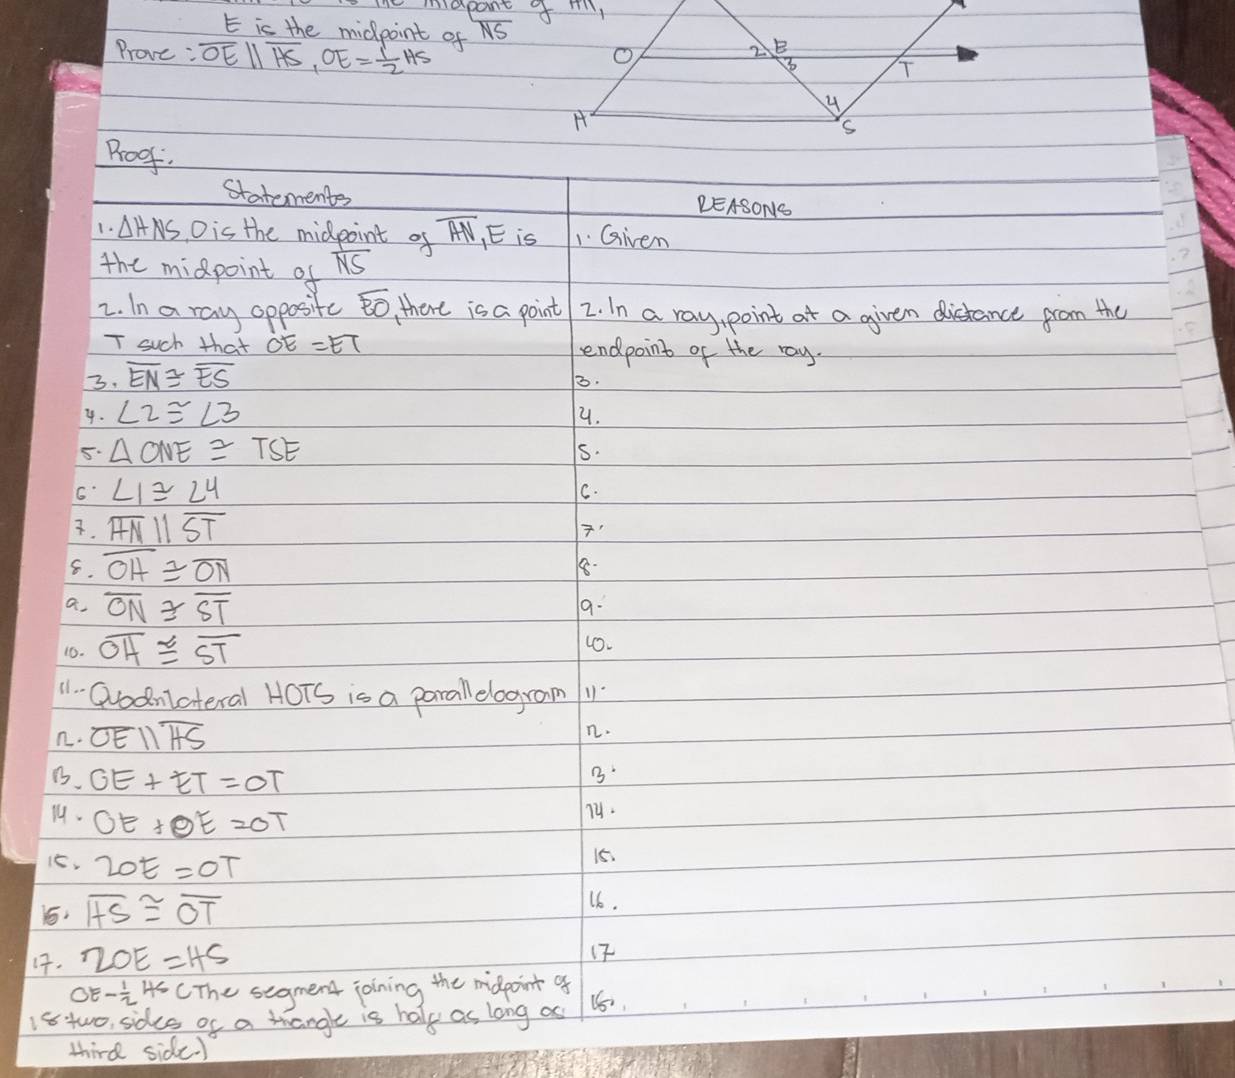 midpoint of
E is the midpoint of NS
Prove: OE || HS, OE = 1/2 HS
O
2 E
3
T
4
H
S
Proof:
Statements
REASONS
1. ΔHNS, O is the midpoint of HN, E is
the midpoint of NS
1. Given
2. In a ray opposite EO, there is a point
T such that OE = ET
2. In a ray, point at a given distance from the
endpoint of the ray.
3. EN ≅ ES
3.
4. ∠2 ≅ ∠3
4.
5. Δ ONE ≅ TSE
5.
6. ∠1 ≅ ∠4
6.
7. HN || ST
7.
8. OH ≅ ON
8.
9. ON ≅ ST
9.
10. OH ≅ ST
10.
11. Quadrilateral HOTS is a parallelogram
11.
12. OE || HS
12.
13. OE + ET = OT
13.
14. OE + OE = OT
14.
15. 2OE = OT
15.
16. HS ≅ OT
16.
17. 2OE = HS
17
OE - 1/2 HS (The segment joining the midpoint of
18. two, sides of a triangle is half as long as
third side.)
18.